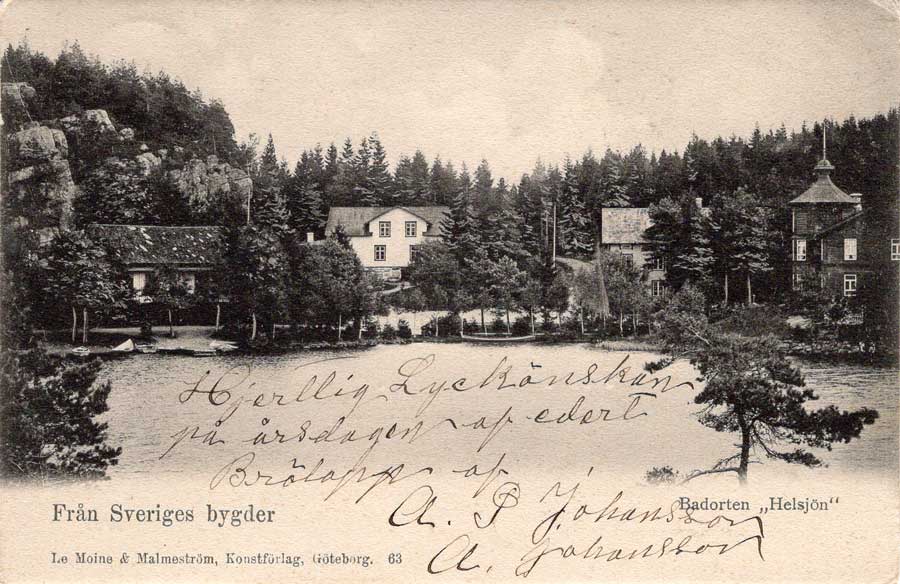 Hjertlig Lyckönskan
på årsdagen af edart
Brölapp af
A. P. Johansson
A. Johansson
Från Sveriges bygder
Badorten „Helsjön“
Le Moine & Malmeström, Konstförlag, Göteborg. 63